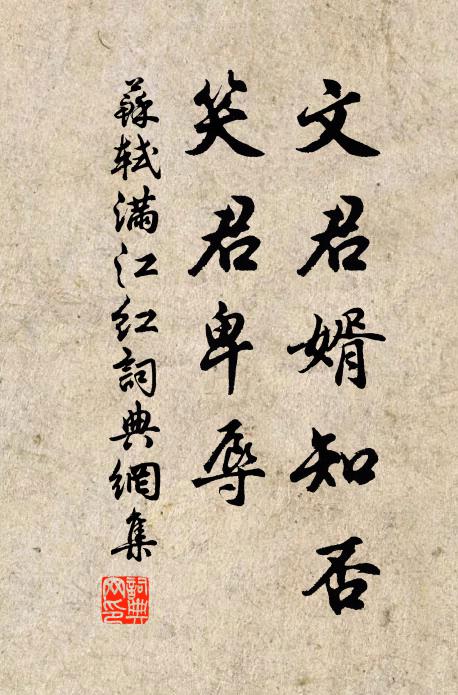 文君婿知否
笑君卑辱
蘇軾滿江紅詞典網集
詞典網印